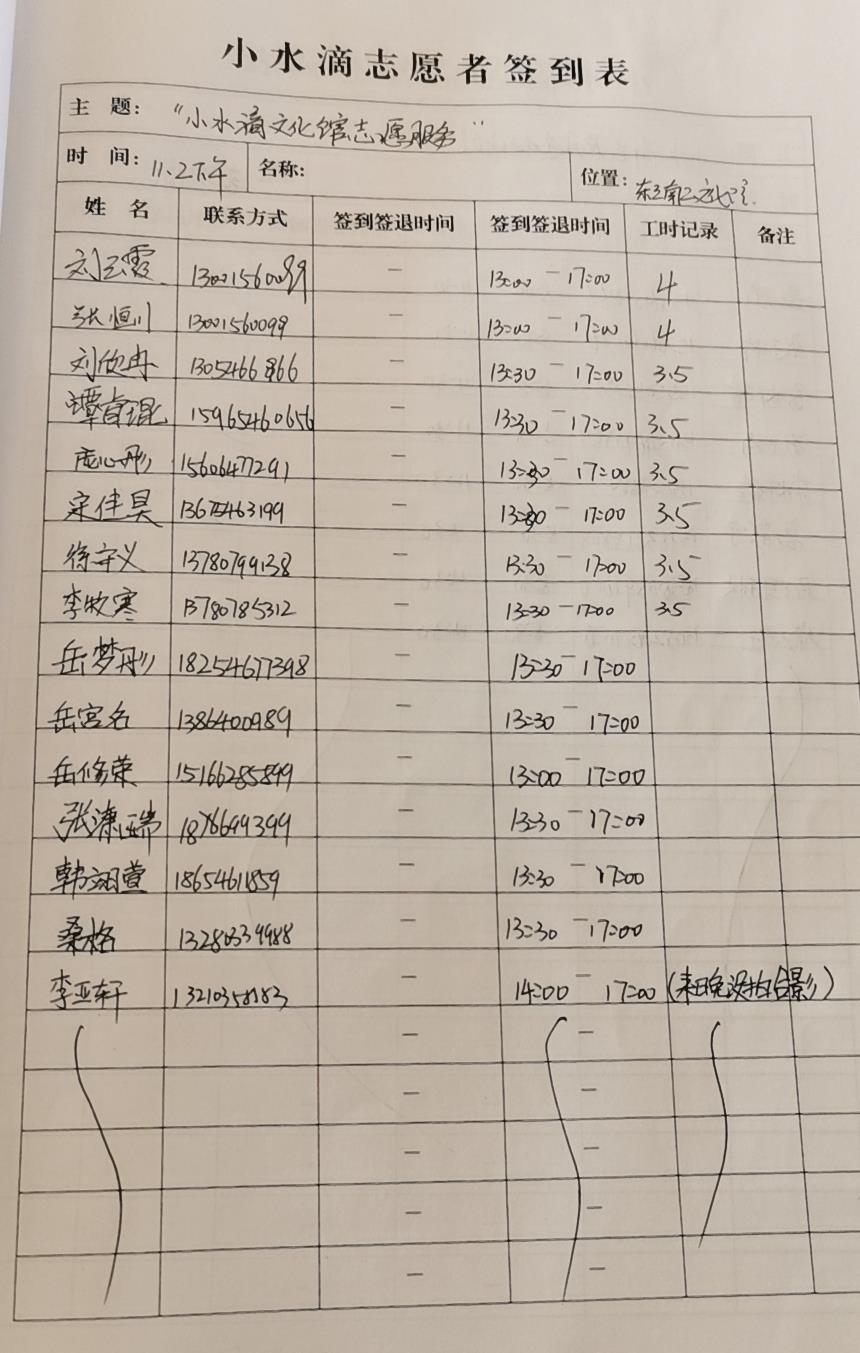 小水滴志愿者签到表
主 题： “小水滴文化馆志愿服务”
时 间： 11.2下午 名称： 位置：
姓 名 联系方式 签到签退时间 签到签退时间 工时记录 备注
刘云霞 — 13:00 — 17:00 4
张恒川 13001560099 — 13:00 — 17:00 4
刘欣冉 — 13:30 — 17:00 3.5
覃睿琨 15965460656 — 13:30 — 17:00 3.5
庞心彤 15606477291 — 13:30 — 17:00 3.5
宋佳昊 — 13:30 — 17:00 3.5
徐守义 13780799138 — 13:30 — 17:00 3.5
李牧寒 13780785312 — 13:30 — 17:00 3.5
岳梦彤 18254677398 — 13:30 — 17:00
岳宫名 1386400989 — 13:30 — 17:00
岳修荣 15166285899 — 13:00 — 17:00
张潇瑞 — 13:30 — 17:00
韩翊萱 18654611859 — 13:30 — 17:00
桑格 13280339988 — 13:30 — 17:00
李亚轩 — 14:00 — 17:00 (来晚没拍合影)
— —
— —
— —
— —
— —